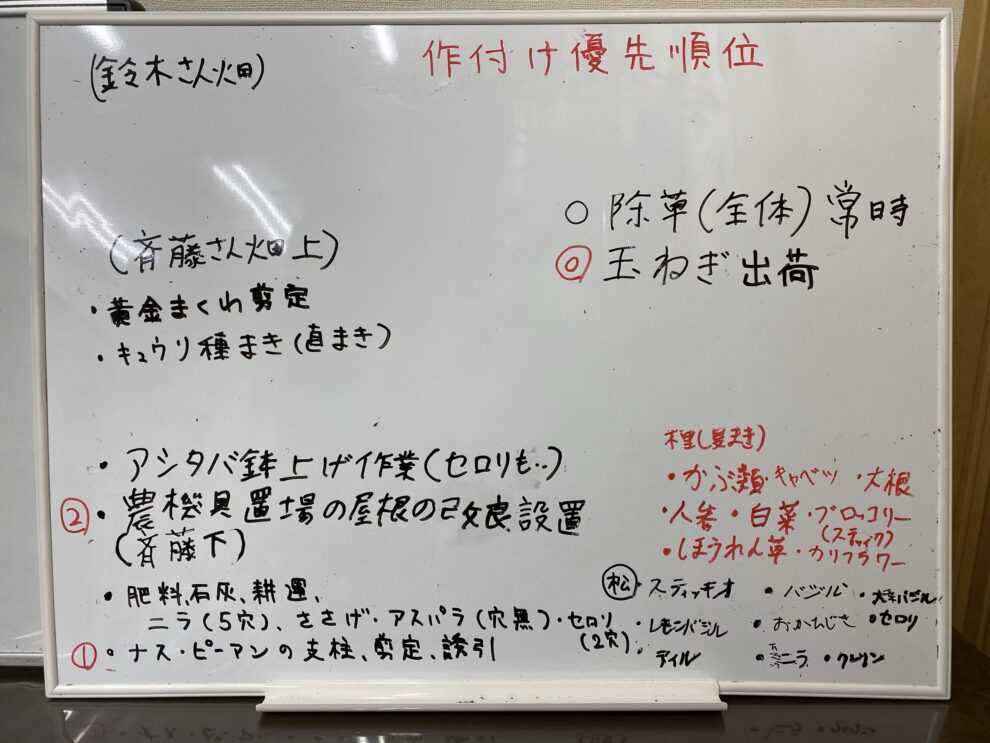 作付け優先順位
(鈴木さん畑)
○ 除草(全体)常時
⓪ 玉ねぎ出荷
(斉藤さん畑上)
・黄金まくわ剪定
・キュウリ種まき(直まき)
・アシタバ鉢上げ作業(セロリも‥)
② ・農機具置場の屋根の改良設置
(斉藤下)
・肥料、石灰、耕運、
ニラ(5穴)、ささげ・アスパラ(穴無)・セロリ
(2穴)
① ・ナス・ピーマンの支柱、剪定、誘引
種(夏まき)
・かぶ類・キャベツ ・大根
・人参・白菜・ブロッコリー
(スティック)
・ほうれん草・カリフラワー
松 ・スティッキオ ・バジル ・大葉バジル
・レモンバジル ・おかひじき ・セロリ
・ディル ・ニラ